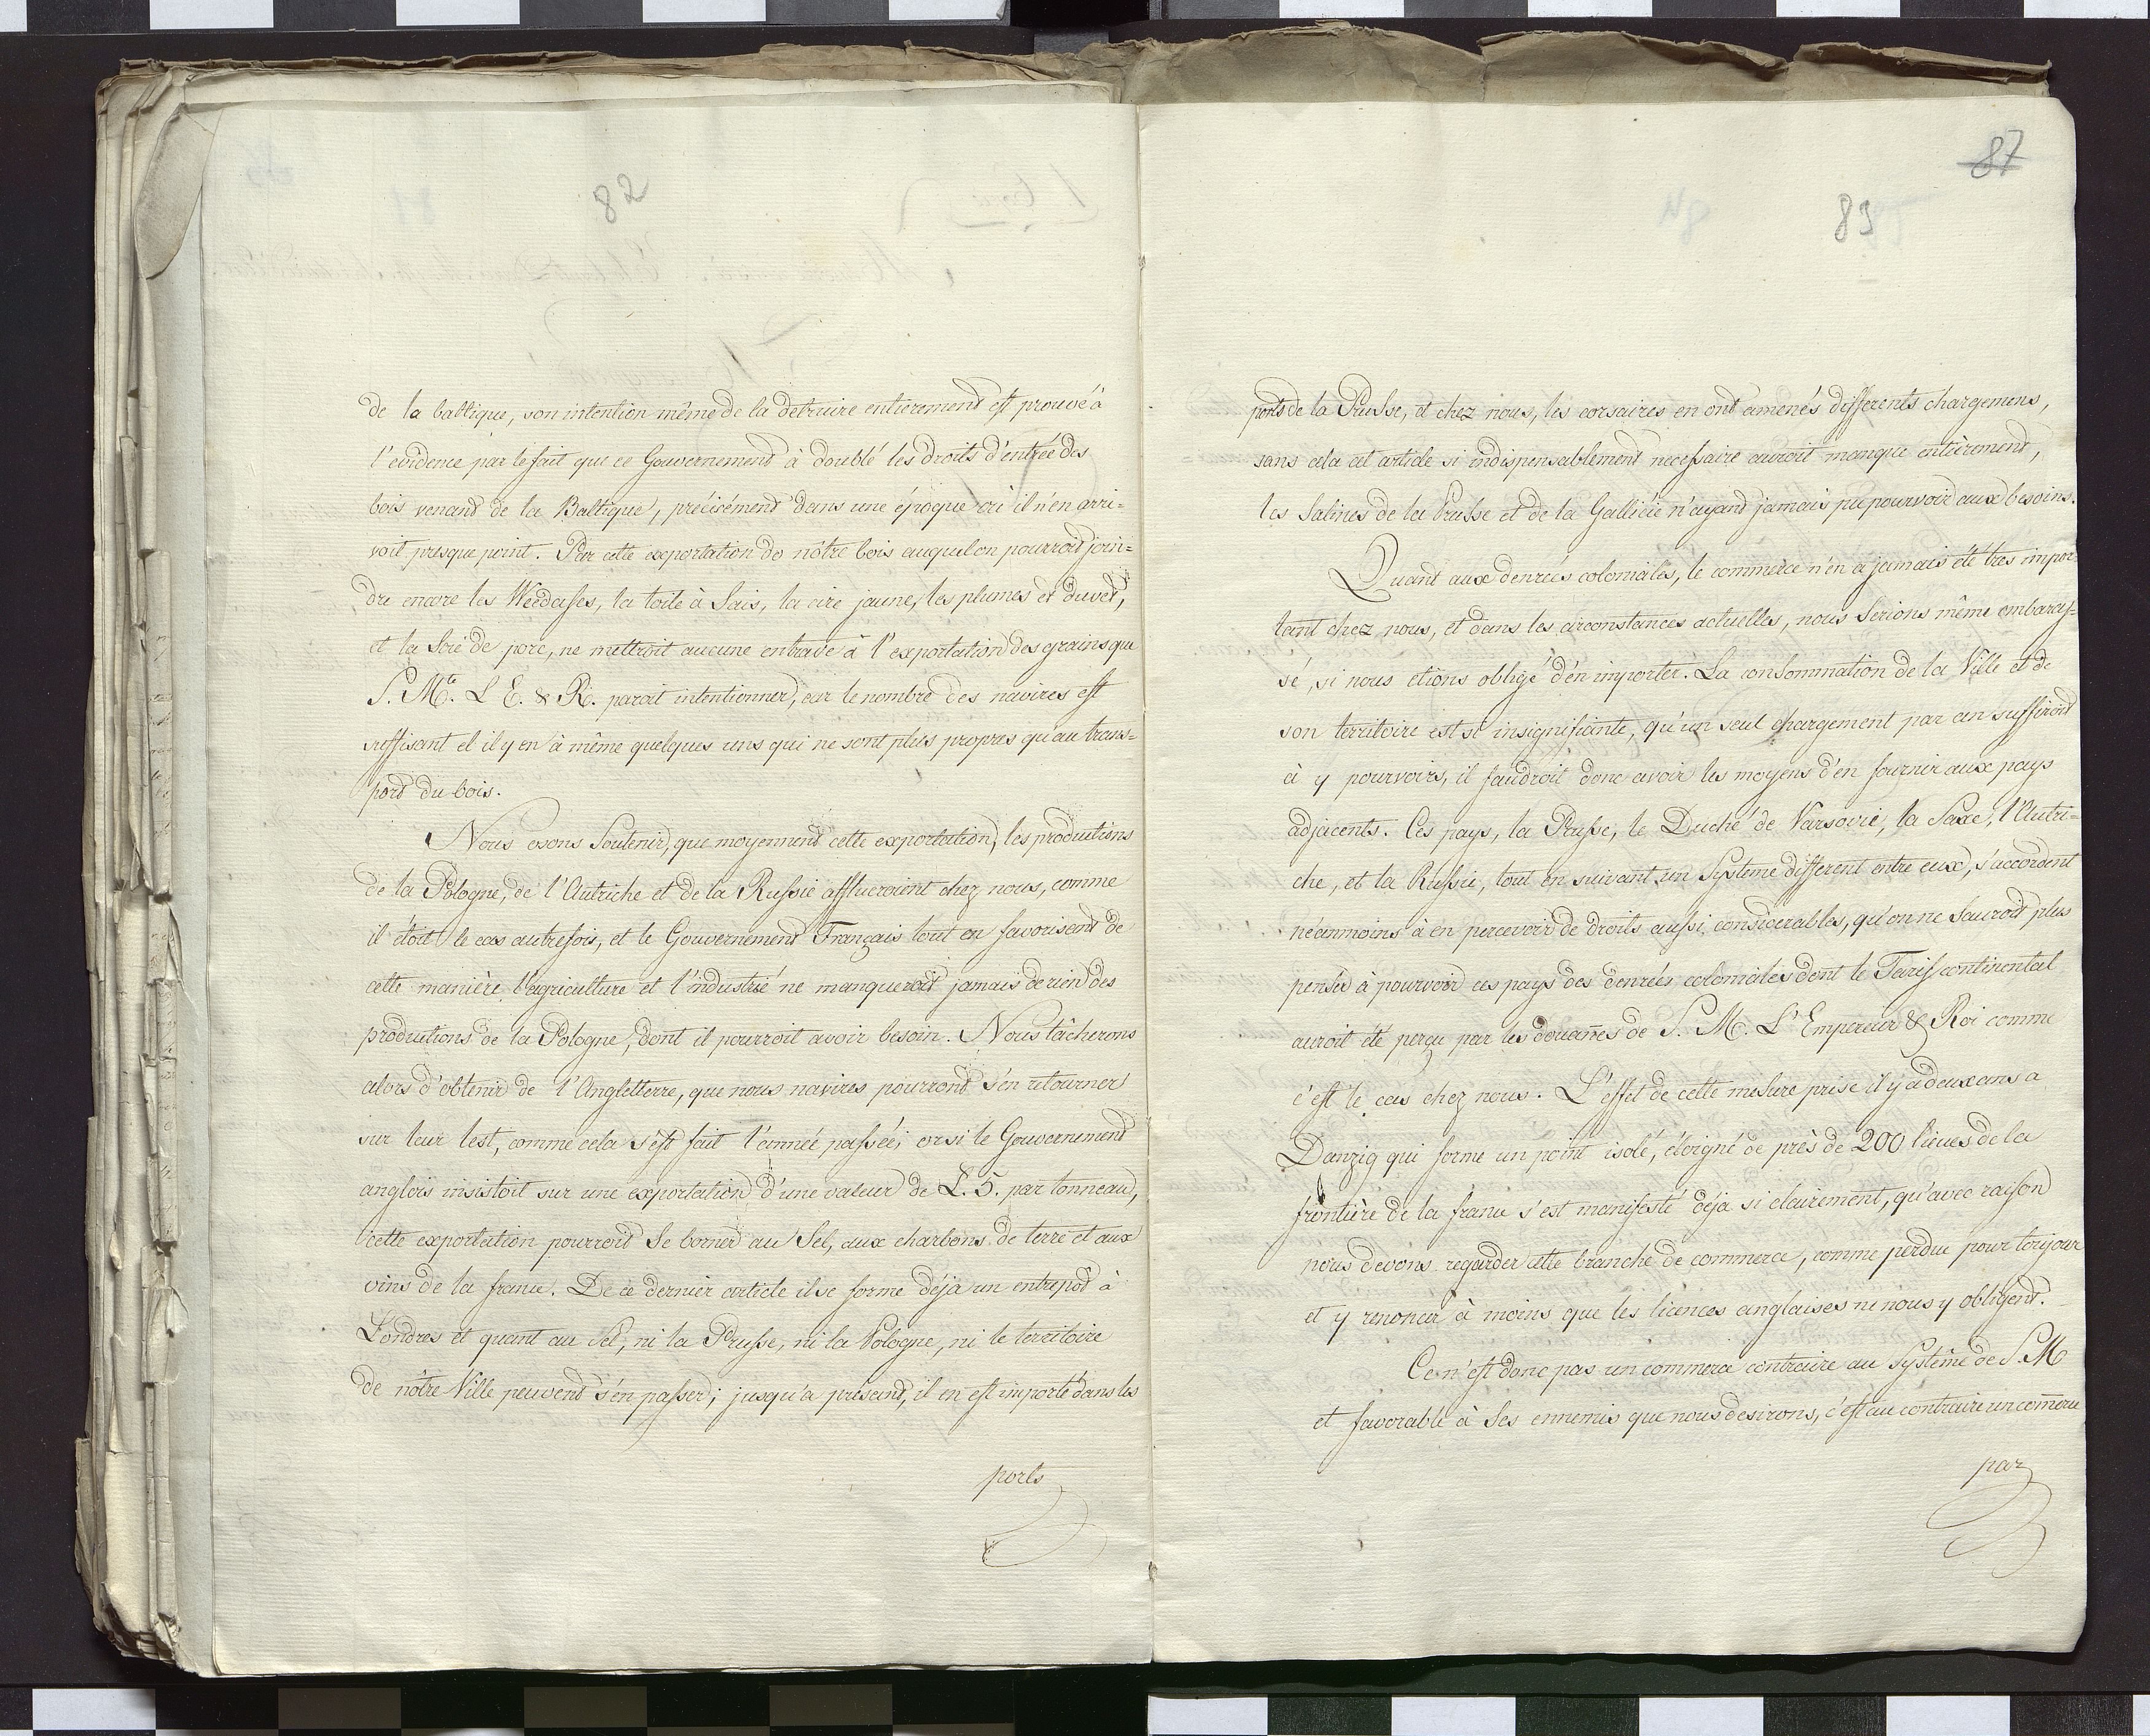 82
de la baltique, son intention même de la detruire entierement est prouvé à
l'evidence par le fait que ce Gouvernement à doublé les droits d'entrée des
bois venant de la Baltique, précisément dans une époque où il n'en arri=
voit presque point. Par cette exportation de nôtre bois auquel on pourroit join=
dre encore les Weedasses, la toile à Sais, la cire jaune, les plumes et duvet,
et la Soie de porc, ne mettroit aucune entrave à l'exportation des grains que
S. Mte. L E. & R. paroit intentionner, car le nombre des navires est
suffisant et il y en à même quelques uns qui ne sont plus propres qu'au trans=
port du bois.
Nous osons Soutenir, que moyennent cette exportation, les productions
de la Pologne, de l'Autriche et de la Russie afflueroient chez nous, comme
il étoit le cas autrefois, et le Gouvernement Français tout en favorisant de
cette manière l'agriculture et l'industrie ne manqueroit jamais de rien des
productions de la Pologne, dont il pourroit avoir besoin. Nous tâcherons
alors d'obtenir de l'Angletterre, que nous navires pourront s'en retourner
sur leur lest, comme cela s'est fait l'année passée; or si le Gouvernement
anglois insistoit sur une exportation d'une valeur de L. 5. par tonneau,
cette exportation pourroit Se borner au Sel, aux charbons de terre et aux
vins de la france. De ce dernier article il se forme déja un entrepôt à
Londres et quant au Sel, ni la Prusse, ni la Pologne, ni le territoire
de nôtre Ville peuvent s'en passer; jusqu'a présent, il en est importé dans les
ports
87
83
ports de la Prusse, et chez nous, les corsaires en ont amenés differents chargemens,
sans cela cet article si indispensablement necessaire auroit manque entièrement,
les Salines de la Prusse et de la Gallicie n'ayant jamais pu pourvoir aux besoins.
Quant aux denrées coloniales, le commerce n'en a jamais été tres impor=
tant chez nous, et dans les circonstances actuelles, nous Serions même embaras=
sé, si nous etions obligé d'en importer. La consommation de la Ville et de
son territoire est si insignifiante, qu'un seul chargement par an suffiroit
à y pourvoirs, il faudroit donc avoir les moyens d'en fournir aux pays
adjacents. Ces pays, la Prusse, le Duché de Varsovie, la Saxe, l'Autri=
che, et la Russie, tout en suivant un Systeme different entre eux, s'accordent
néanmoins à en percevoir de droits aussi considerables, qu'on ne Sauroit plus
penser à pourvoir ces pays des denrées coloniales dont le Tarif continental
auroit été perçu par les douanes de S. M. L'Empereur & Roi comme
c'est le cas chez nous. L'effet de cette mesure prise il y a deux ans a
Danzig qui forme un point isolé, éloigné de près de 200 lieues de la
frontière de la france s'est manifesté déja si clairement, qu'avec raison
nous devons regarder cette branche de commerce, comme perdue pour toujour
et y renoncer à moins que les licences anglaises ne nous y obligent.
Ce n'est donc pas un commerce contraire au Systême de S. M
et favorable à Ses ennemis que nous desirons, c'est au contraire un com̄erce
par